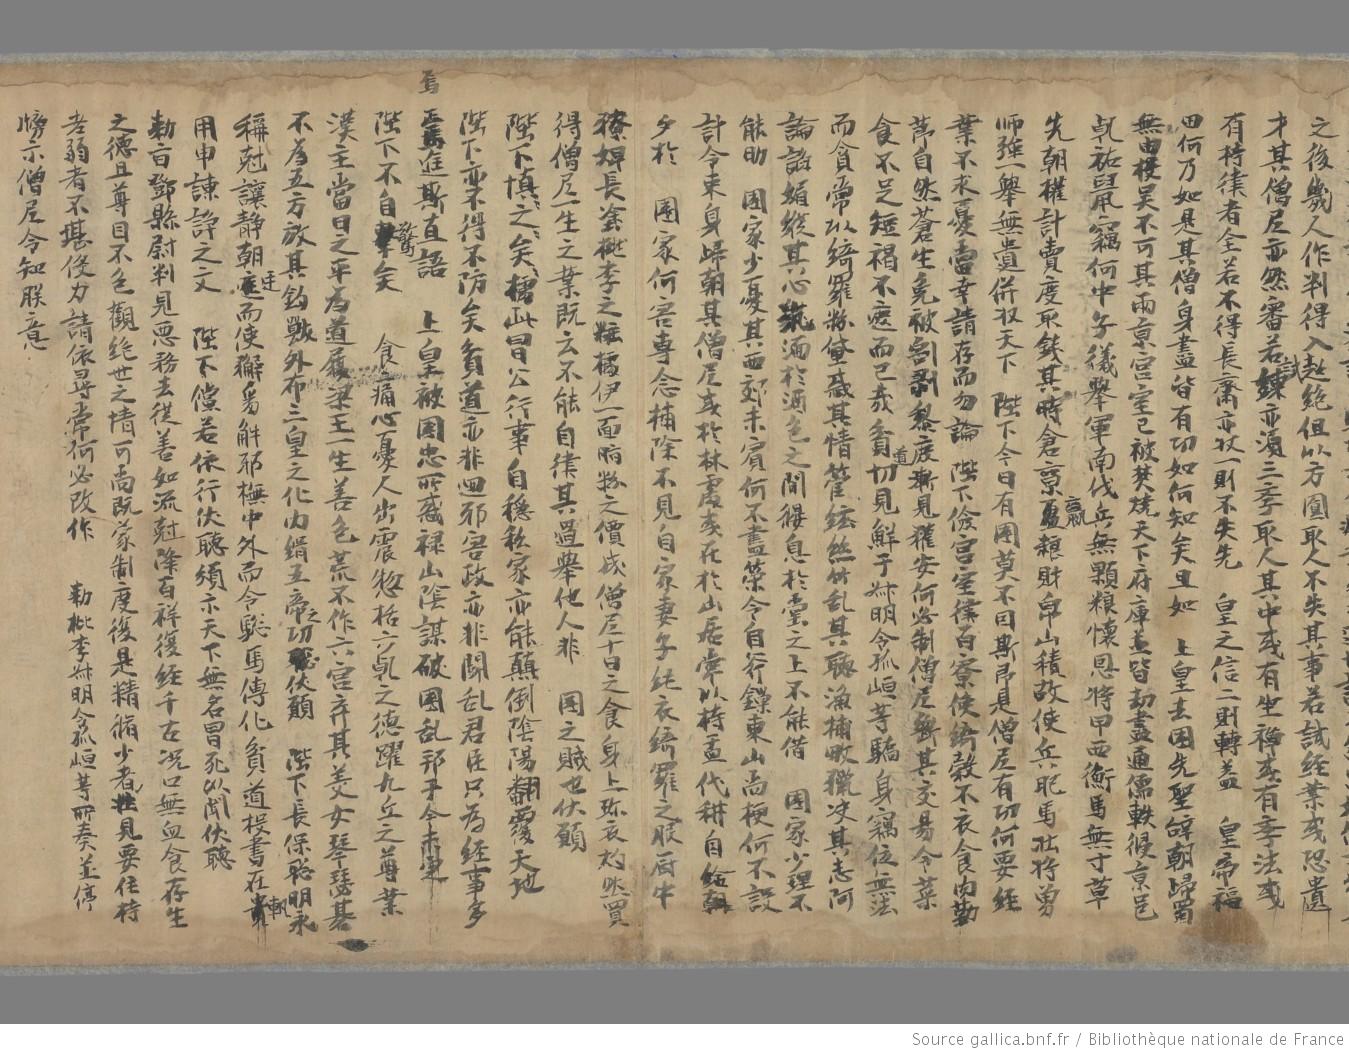 之後幾人作判得入超絶但以方圓取人不失其事若試經業或恐遺
才其僧尼亦然審若試練亦須三季取人其中或有坐禪或有季法或
有持律者全若不得長齋亦捉一則不失先 皇之信二則轉益 皇帝福
田何乃如是其僧身盡皆有功如何知矣且如 上皇去國先聖辞朝歸蜀
無由權吴不可其兩京宫室已被焚燒天下府庫並皆劫盡通儒軼倰京邑
乹祐鼠竊何中子儀舉軍南伐兵無顆粮懷恩将甲西衡馬無寸草
先朝權計賣度取錢其時倉稟盈贏粮財帛山積故使兵肥馬壮将勇
师强一舉無遺併收天下 陛下今日有國莫不因斯即是僧尼有功何要經
業不求憂雷幸請存而勿論 陛下儉宫室律百寮使綺縠不衣食肉勤
蔕自然蒼生免被割剥黎庶漸見獲安何必制僧尼斷其交易令菜
食不足短褐不遮而已哉貧道切見鮮于叔明令狐峘等驕身竊位無法
而貪常以綺羅粉黛惑其情管絃絲竹乱其聽漁捕畋獵決其志阿
諛諂媚縱其心沉湎於酒色之間偃息於堂之上不能借 國家少理不
能助 國家少憂其西郊未賓何不盡策令自行鏁東山尚梗何不設
計令束身歸朝其僧尼或於林處或在於山居常以持盂代耕自給朝
夕於 國家何害專念補除不見自家妻子純衣綺羅之服厨牛
穢婢長釜枇李之粧橘伊一面脂粉之價成僧尼十日之食身上弥衣灼然買
得僧尼一生之業既云不能自律其過舉他人非 國之賊也伏願
陛下慎之矣 檽此冒公行事自穩私家亦能顛倒陰陽翻覆天地
陛下亦不得不防矣貧道亦非迴邪害政亦非鬪乱君臣只為經事多
焉進斯直語 上皇被國忠所惑禄山陰謀破國乱邦于今未寧
陛下不自驚矣 食痛心憂人出震惣括六乹之德躍九丘之尊業
漢主當日之平為道履梁王一生善色荒不作六宫弃其美女琴瑟碁
不為五方放其鈎戰外布三皇之化内緝五帝之功伏願 陛下長保聡明永
稱尅讓静朝庭而使獬豸觧耶撫中外而令駝馬傳化貧道投書在軌
用申諫諍之文 陛下儻若依行伏聴頒示天下無名冒死以聞伏聴
勅旨鄧縣尉判見惡務去從善如流尅降百祥復經千古況口無血食存生
之德且尊目不色觀絶世之情可尚既蒙制度後是精脩少者壮見要住持
老弱者不堪俊力請依尋常何必改作 勅枇李叔明令狐峘等所奏並停
牓示僧尼令知朕意